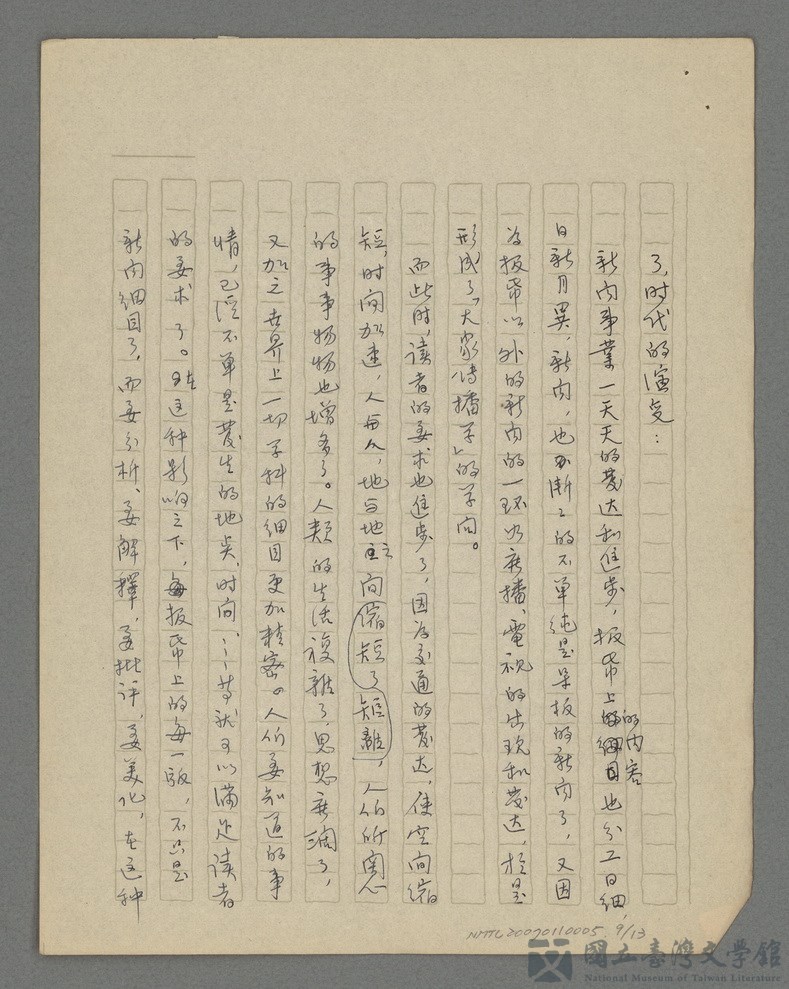 了,时代的演变:
新闻事業一天天的發达和進步,报帋上的内容也分工日细,
日新月異,新闻,也渐々的不單純是呆板的新闻了,又因
為报帋以外的新闻的一环如廣播、電視的出現和發达,於是
形成了「大家傳播学」的学问。
而此时,读者的要求也進步了,因為交通的發达,使空间缩
短,时间加速,人与人,地与地之间缩短了距離,人们所関心
的事事物物也增多了。人類的生活複雜了,思想廣濶了,
又加之世界上一切学科的细目更加精密。人们要知道的事
情,已經不單是發生的地点,时间,……等就可以滿足读者
的要求了。在这种影响之下,每报帋上的每一版,不只是
新闻细目了,而要分析、要解釋,要批评,要美化,在这种
NMTL20070110005 9/13
國立臺灣文學館
National Museum of Taiwan Literature